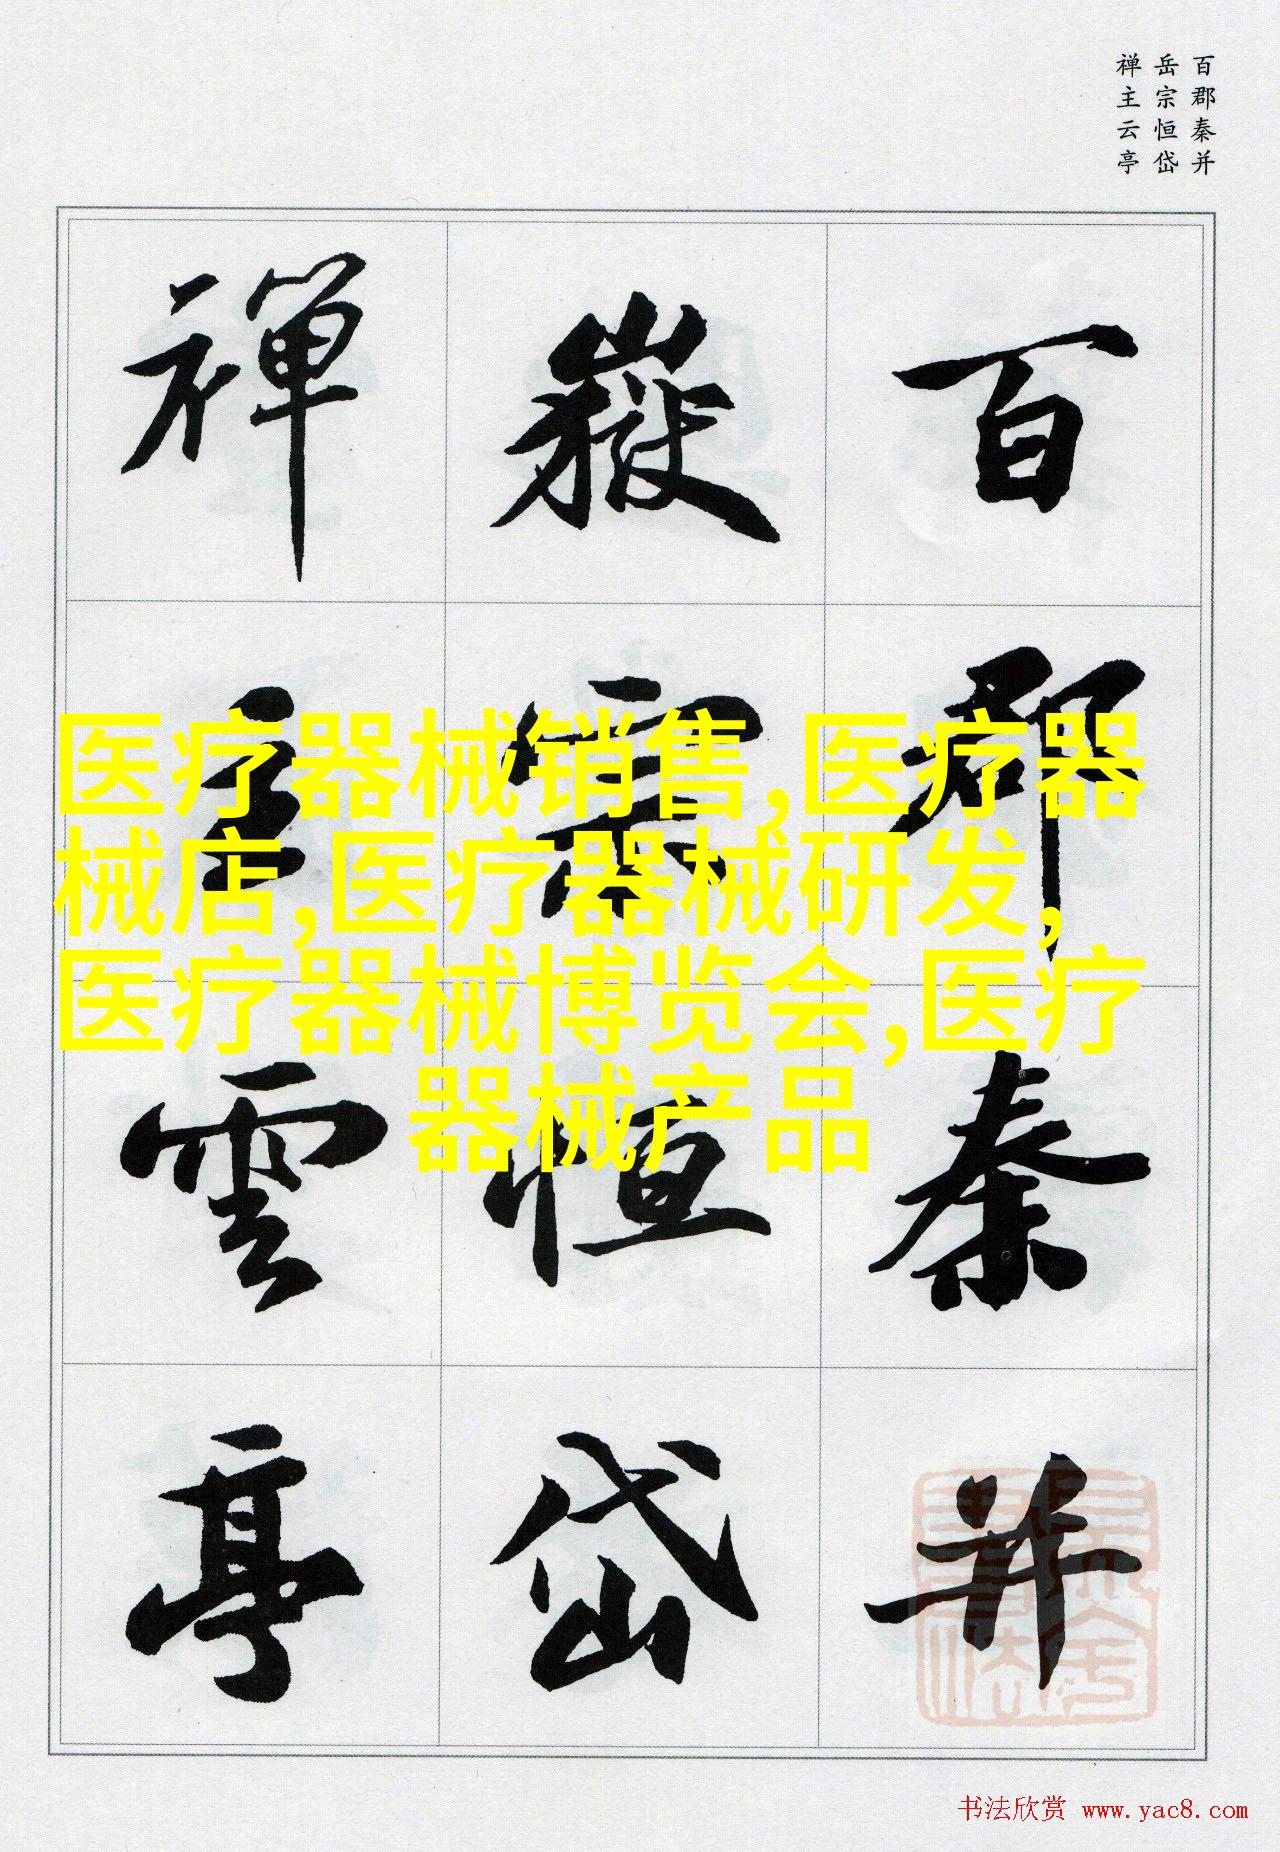 百郡秦并
岳宗恒岱
禅主云亭
百郡秦并
嶽宗恒岱
禅主雲亭
医疗器械销售,医疗器
械店,医疗器械研发,
医疗器械博览会,医疗
器械产品
书法欣赏 www.yac8.com